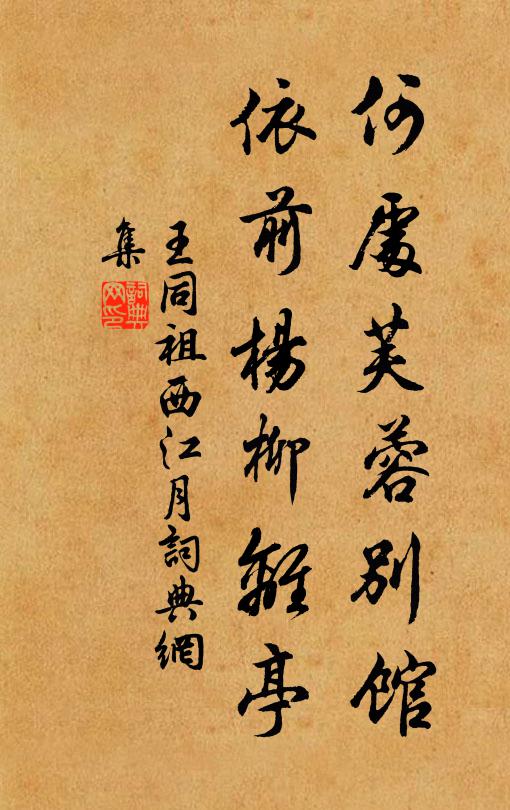 何處芙蓉別館
依前楊柳離亭
王同祖西江月詞典網
集
詞典
网印